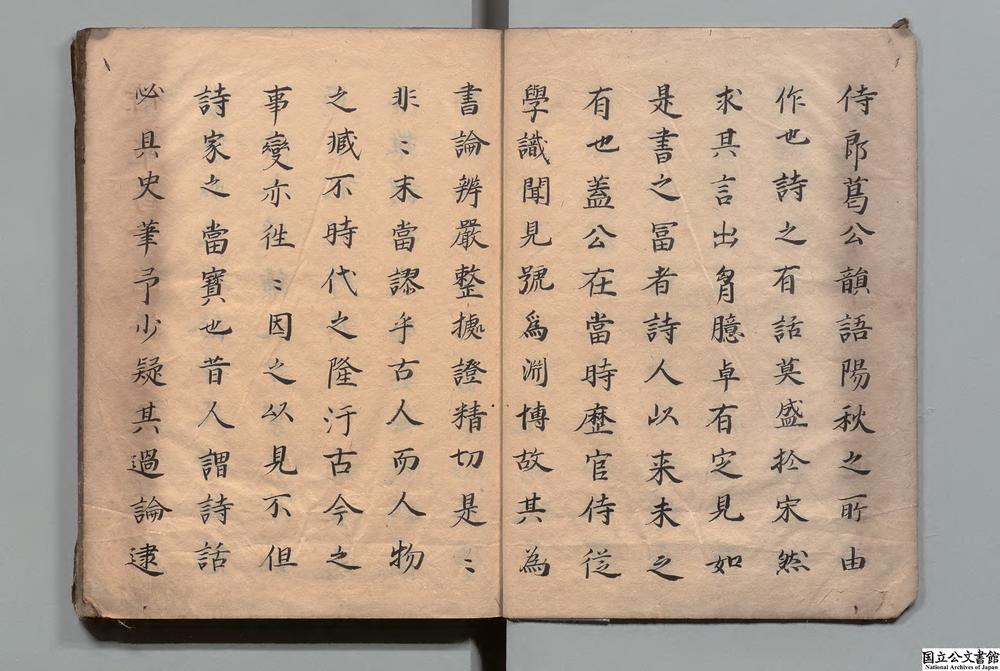 侍郎葛公韻語陽秋之所由
作也詩之有話莫盛於宋然
求其言出胷臆卓有定見如
是書之冨者詩人以来未之
有也蓋公在當時歷官侍従
學識聞見號爲淵博故其為
書論辨嚴整摭證精切是〻
非〻末當謬乎古人而人物
之臧不時代之隆汙古今之
事變亦徃〻因之以見不但
詩家之當寳也昔人謂詩話
必具史筆予少疑其過論逮
国立公文書館
National Archives of Japan